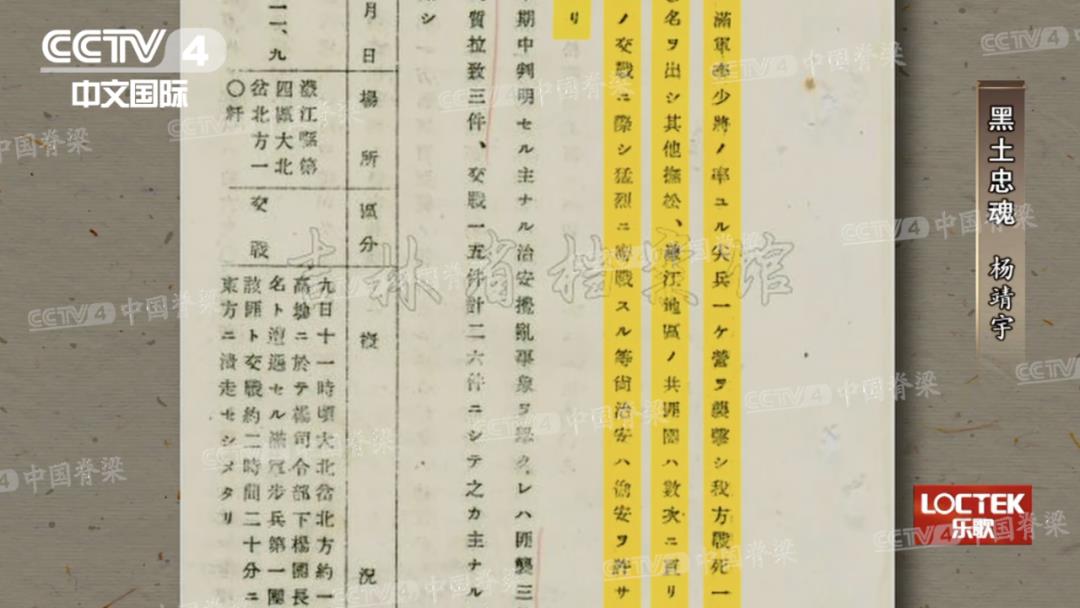 CCTV 4
中文国际
黑土忠魂 杨靖宇
LOCTEK
乐歌
吉林省档案馆
CCTV 4 中国脊梁
滿軍
少將ノ率ユル尖兵一ケ營ヲ襲擊シ我方戰死一
名ヲ出シ其他撫松、濛江地區ノ共匪團ハ數次ニ亘リ
ノ交戰ニ際シ猛烈ニ
戰スル等尙治安ハ偷安ヲ許サ
リ
期中判明セル主ナル治安攪亂事象ヲ擧クレハ匪襲三
質拉致三件、交戰一五件計二六件ニシテ之カ主ナル
シ
月日
場所
區分
槪況
一、九
濛江縣第
四區大北
岔北方一
〇粁
交戰
九日十一時頃大北岔北方約一
高地ニ於テ楊司令部下楊團長
名ト遭遇セル滿軍步兵第一團
該匪ト交戰約二時間二十分ニ
東方ニ潰走セシメタリ